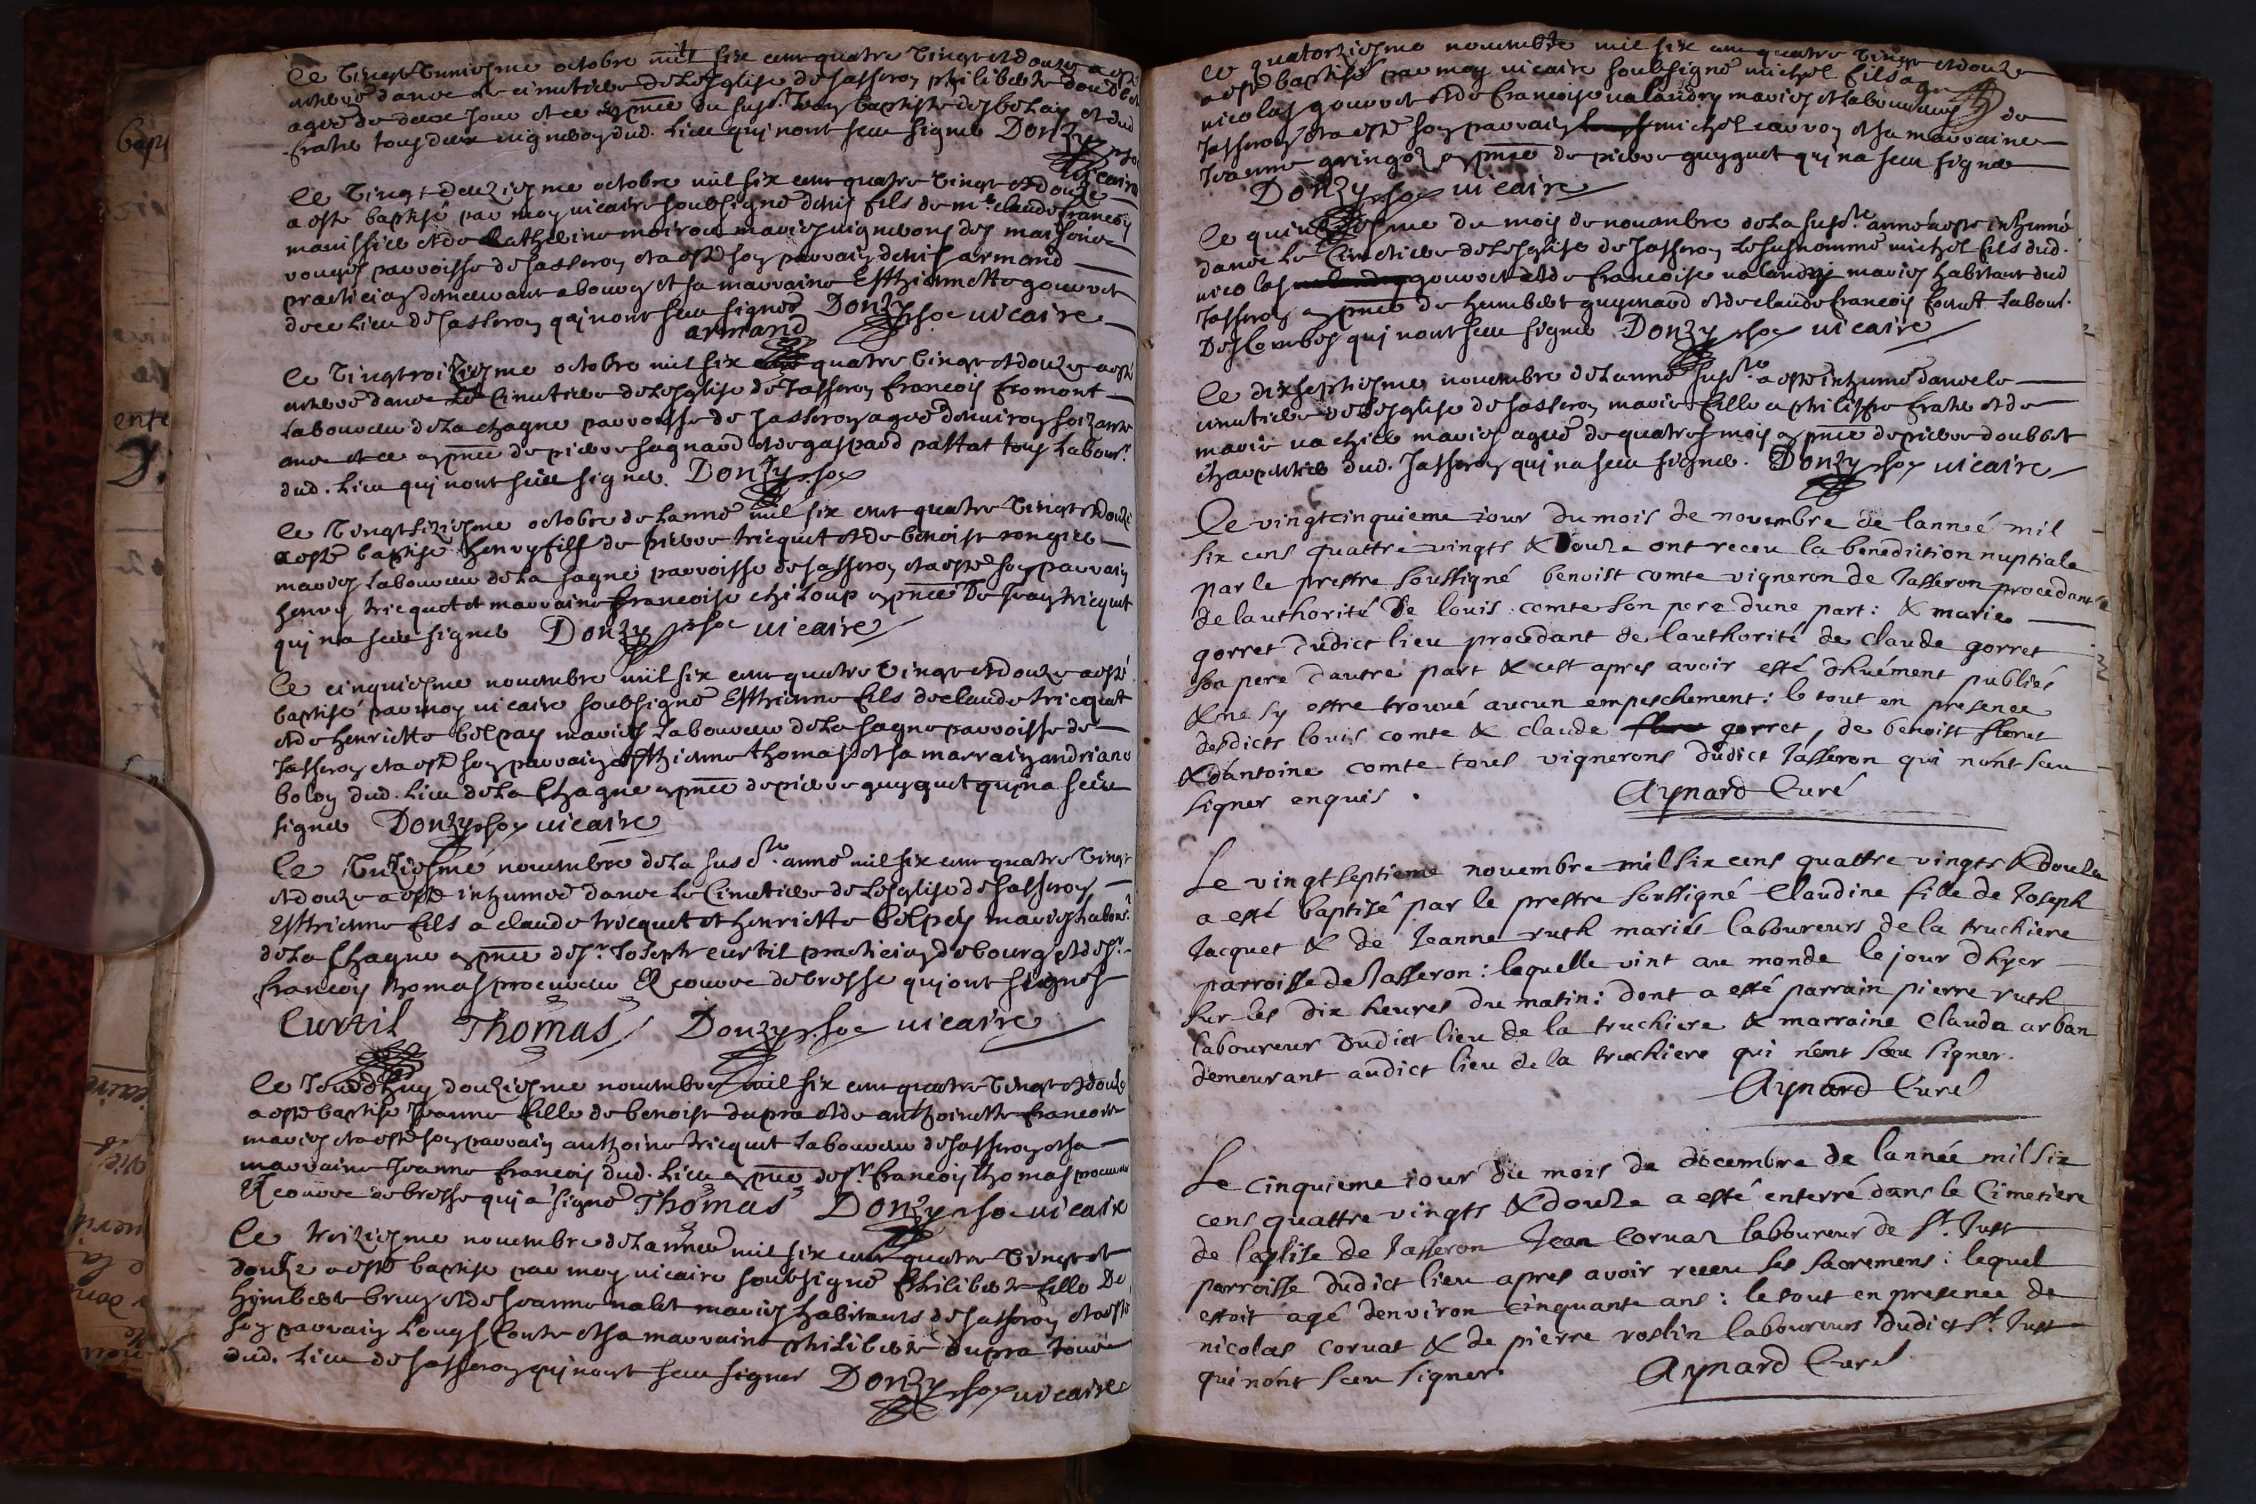 Le vingt uniesme octobre mil six cent quatre vingt et douze a esté
enterré dans le cimetiere de Lesglise de Jasseron philiberte doubbet
agée de deux jours et ce en pnce du susd.
frater tous deux vignerons dud. Lieu qui nont sceu signer Donzy
vicaire
Le vingt deuziesme octobre mil six cent quatre vingt et douze
a esté baptisé par moy vicaire soubsigné denis fils de m.e claude francois
et de Katherine mariés vignerons des maisons
parroisse de Jasseron et a esté son parrain denis armand
practicien demeurant a bourg et sa marraine Esthiennette gouvret
de ce Lieu de Jasseron qui nont sceu signer Donzy vicaire
armand
Le vingtroiziesme octobre mil six quatre vingt et douze a esté
enterré dans Le Cimetiere de Lesglise de Jasseron francois fromont
Laboureur de La chagne parroisse de Jasseron agé denviron soizante
ans et ce en pnce de pierre sagnard et de gaspard pattat tous Labour.rs
dud. Lieu qui nont sceu signer. Donzy
Le vingt siziesme octobre de Lanné mil six cent quatre vingt et douze
a esté baptisé henry fils de pierre tricquet et de benoiste rongier
mariés Laboureur de La sagne parroisse de Jasseron et a esté son parrain
henry tricquet et marraine francoise chiloup en pnce de Jean tricquet
qui na sceu signer Donzy vicaire
Le cinquiesme novembre mil six cent quatre vingt et douze a esté
baptisé par moy vicaire soubsigné Esthienne fils de claude tricquet
et de henriette belpay mariés Laboureur de La sagne parroisse de
Jasseron et a esté son parrain Esthienne thomas et sa marrain andriane
boloy dud. Lieu de La Chagne en pnce de pierre guyguet qui na sceu
signer Donzy vicaire
Le unziesme novembre de La susd.te année mil six cent quatre vingt
et douze a esté inhumé dans Le Cimetiere de Lesglise de Jasseron
Esthienne fils a claude tricquet et henriette belpey mariés Labour.rs
de La Chagne en pnce de s.r Joseph curtil practicien de bourg et de s.r
francois thomas procureur Escouvre de bresse qui ont signés
Curtil Thomas Donzy vicaire
Le Jourdhuy douziesme novembre mil six cent quatre vingt et douze
a esté baptisé Jeanne fille de benoist dupra et de anthoinette francois
mariés et a esté son parrain anthoine tricquet Laboureur de Jasseron et sa
marraine Jeanne francois dud. Lieu en pnce de s.r francois thomas procureur
Escouvre de bresse qui a signé Thomas Donzy vicaire
Le treiziesme novembre de Lannée mil six cent quatre vingt et
douze a esté baptisé par moy vicaire soubsigné Philiberte fille de
hymbert brun et de Jeanne nalet mariés habitants de Jasseron et a esté
son parrain Louys Conte et sa marraine philiberte dupra tous
dud. Lieu de Jasseron qui nont sceu signer Donzy vicaire
Le quatorziesme novembre mil six cent quatre vingt et douze
a esté baptisé par moy vicaire soubsigné michel fils a
nicolas gouvret et de francoise valandry mariés et Laboureurs de
Jasseron et a esté son parrain michel carron et sa marraine
Jeanne gringoz en pnce de pierre guyguet qui na sceu signer
Donzy vicaire
Le quinziesme du mois de novembre de La susd.te année a esté inhumé
dans Le Cimetiere de Lesglise de Jasseron Le susnommé michel fils dud.
nicolas gouvret et de francoise valandry mariés habitant dud
Jasseron en pnce de humbert guynard et de claude francois Labour.
Des Combes qui nont sceu signer Donzy vicaire
Le dixseptiesme novembre de Lanné susd.te a esté inhumé dans le
cimetiere de Lesglise de Jasseron marie fille a philippe frater et de
marie vachier mariés agée de quatres mois en pnce de pierre doubbet
charpentier dud. Jasseron qui na sceu signer. Donzy vicaire
Le vingtcinquieme iour du mois de novembre de lanneé mil
six cens quattre vingts & douze ont receu la benediction nuptiale
par le prestre soussigné benoist comte vigneron de Jasseron procedant
de lauthorité de louis comte son pere dune part: & marie
gorret dudict lieu procedant de lauthorité de claude gorret
son pere dautre part & cest apres avoir esté dhuément publiés
& ne sy estre trouvé aucun empeschement: le tout en presence
desdicts louis comte & claude gorret, de benoist floret
& dantoine comte tous vignerons dudict Jasseron qui nónt sceu
signer enquis.
Aynard Curé
Le vingtseptieme novembre mil six cens quattre vingts & douze
a esté baptisé par le prestre soussigné Claudine fille de Joseph
Jacquet & de Jeanne ruth mariés laboureurs de la truchiere
parroisse de Jasseron: laquelle vint au monde le jour dhyer
sur les dix heures du matin: dont a esté parrain pierre ruth
laboureur dudict lieu de la truchiere & marraine Clauda arban
demeurant audict lieu de la truchiere qui nónt sceu signer.
Aynard Curé
Le cinquieme iour du mois de decembre de lannée mil six
cens quattre vingts & douze a esté enterré dans le Cimetiere
de leglise de Jasseron Jean Corvat laboureur de St. Just
parroisse dudict lieu apres avoir receu ses sacremens: lequel
estoit agé denviron cinquante ans: le tout en presence de
nicolas corvat & de pierre roslin laboureurs dudict St. Just
qui nónt sceu signer.
Aynard Curé